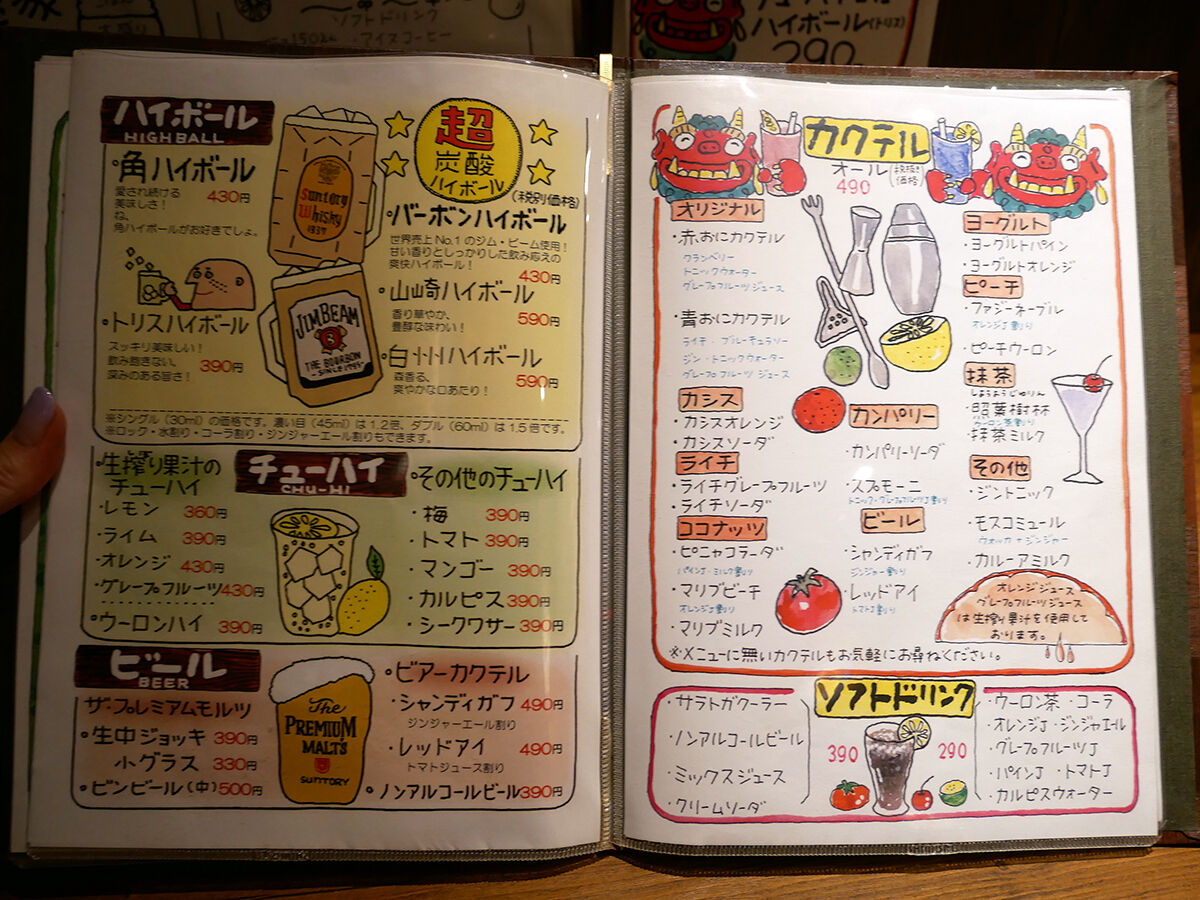 ソフトドリンク
アイスコーヒー
ハイボール(トリス)
290
ハイボール
HIGHBALL
・角ハイボール
愛され続ける
美味しさ!
ね、
角ハイボールがお好きでしょ。
430円
Suntory
Whisky
1937
超
炭酸
ハイボール
(税別価格)
・バーボンハイボール
世界売上No.1のジム・ビーム使用!
甘い香りとしっかりした飲み応えの
爽快ハイボール!
430円
・山崎ハイボール
香り華やか、
豊醇な味わい!
590円
・白州ハイボール
森香る、
爽やかな口あたり!
590円
JIM BEAM
THE BOURBON
SINCE 1795
・トリスハイボール
スッキリ美味しい!
飲み飽きない、
深みのある旨さ!
390円
※シングル(30ml)の価格です。濃い目(45ml)は1.2倍、ダブル(60ml)は1.5倍です。
※ロック・水割り・コーラ割り・ジンジャーエール割りもできます。
チューハイ
CHU-HI
・生搾り果汁の
チューハイ
・レモン 360円
・ライム 390円
・オレンジ 430円
・グレープフルーツ 430円
・ウーロンハイ 390円
・その他のチューハイ
・梅 390円
・トマト 390円
・マンゴー 390円
・カルピス 390円
・シークワサー 390円
ビール
BEER
ザ・プレミアムモルツ
・生中ジョッキ 390円
小グラス 330円
・ビンビール(中) 500円
The
PREMIUM
MALT'S
SUNTORY
・ビアーカクテル
・シャンディガフ 490円
ジンジャーエール割り
・レッドアイ 490円
トマトジュース割り
・ノンアルコールビール 390円
カクテル
オール
490
(税抜き
価格)
オリジナル
・赤おにカクテル
クランベリー
トニックウォーター
グレープフルーツジュース
・青おにカクテル
ライチ・ブルーキュラソー
ジン・トニックウォーター
グレープフルーツジュース
カシス
・カシスオレンジ
・カシスソーダ
ライチ
・ライチグレープフルーツ
・ライチソーダ
ココナッツ
・ピニャコラーダ
パインJ・ミルク割り
・マリブピーチ
オレンジJ割り
・マリブミルク
カンパリー
・カンパリーソーダ
・スプモーニ
トニック・グレープフルーツJ割り
ビール
・シャンディガフ
ジンジャー割り
・レッドアイ
トマトJ割り
ヨーグルト
・ヨーグルトパイン
・ヨーグルトオレンジ
ピーチ
・ファジーネーブル
オレンジJ割り
・ピーチウーロン
抹茶
しょうようじゅりん
・照葉樹林
ウーロン茶割り
・抹茶ミルク
その他
・ジントニック
・モスコミュール
ウォッカ+ジンジャー
・カルーアミルク
オレンジジュース
グレープフルーツジュース
は生搾り果汁を使用して
おります。
※メニューに無いカクテルもお気軽にお尋ねください。
ソフトドリンク
・サラトガクーラー
・ノンアルコールビール
・ミックスジュース
・クリームソーダ
390
290
・ウーロン茶・コーラ
・オレンジJ・ジンジャエール
・グレープフルーツJ
・パインJ・トマトJ
・カルピスウォーター